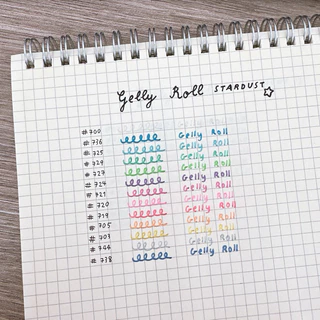 Gelly Roll STARDUST
#700 Gelly Roll
#736 Gelly Roll
#725 Gelly Roll
#729 Gelly Roll
#727 Gelly Roll
#724 Gelly Roll
#721 Gelly Roll
#720 Gelly Roll
#719 Gelly Roll
#705 Gelly Roll
#703 Gelly Roll
#744 Gelly Roll
#738 Gelly Roll